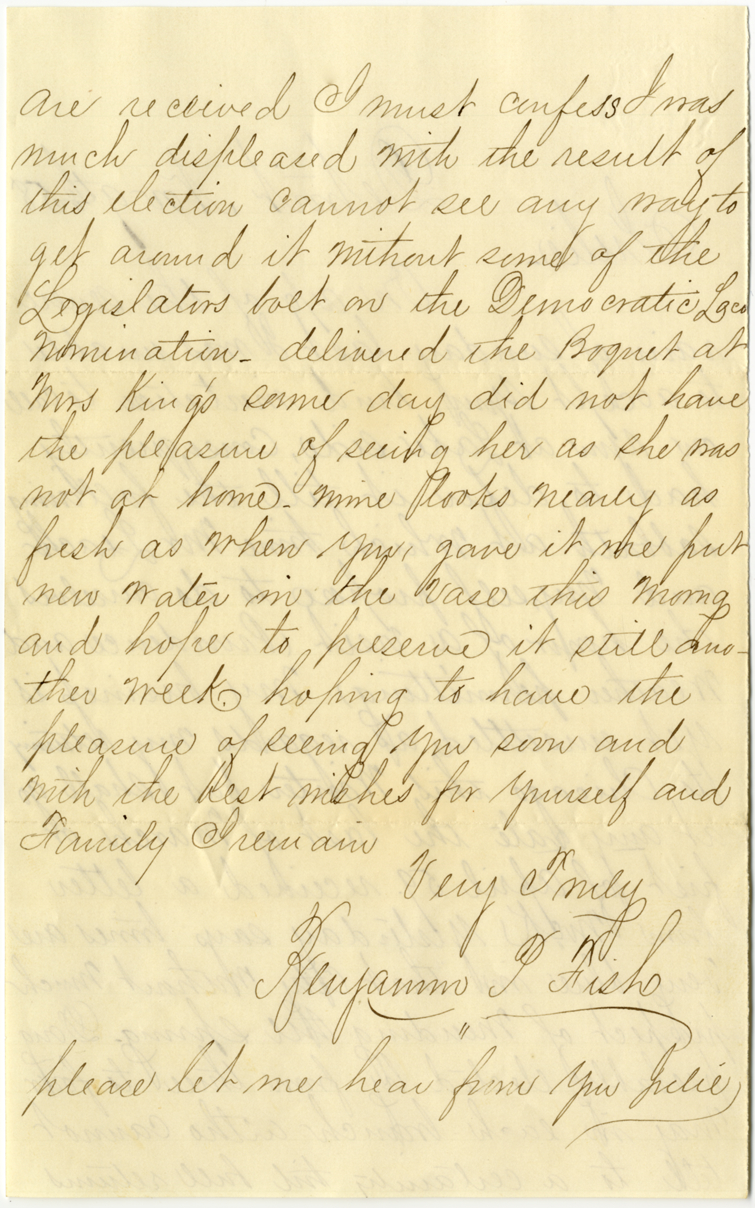 are received I must confess I was
much displeased with the result of
this election cannot see any way to
get around it without some of the
Legislators bolt on the Democratic Loco
Nomination - delivered the Boquet at
Mrs King's same day did not have
the pleasure of seeing her as she was
not at home - mine looks nearly as
fresh as when you, gave it me put
new water in the Vase this Morng
and hope to preserve it still ano-
ther week. hoping to have the
pleasure of seeing you soon and
with the best wishes for yourself and
Family I remain
Very Truly
Benjamin P Fish
"
please let me hear from you Julie